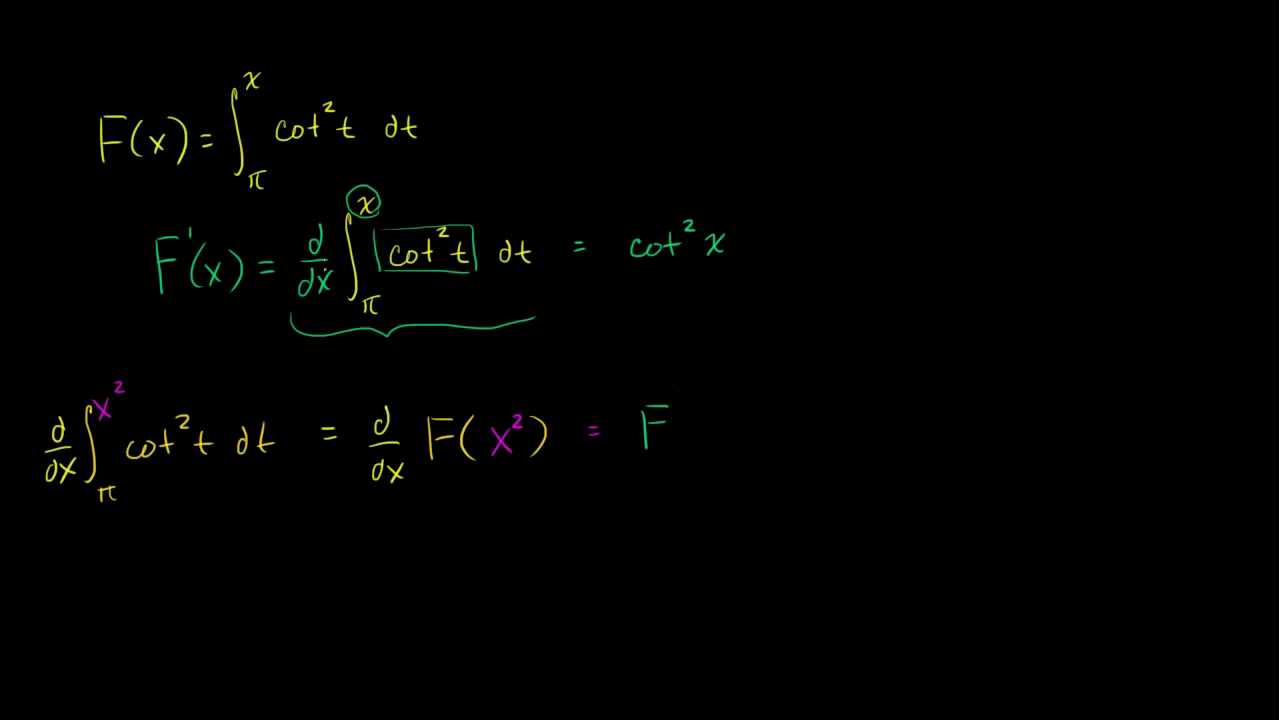 F(x) = ∫_π^x cot² t dt
F'(x) = d/dx ∫_π^x cot² t dt = cot² x
d/dx ∫_π^x² cot² t dt = d/dx F(x²) = F